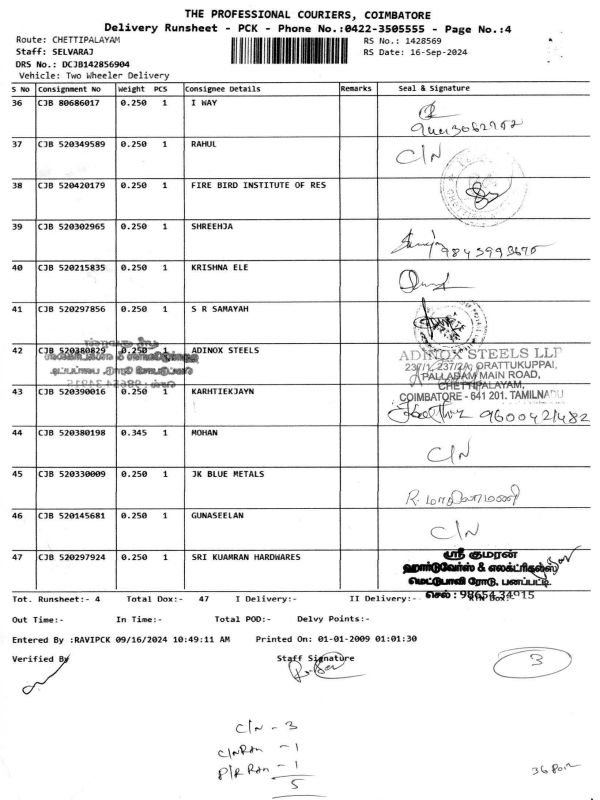 THE PROFESSIONAL COURIERS, COIMBATORE
Delivery Runsheet - PCK - Phone No.:0422-3505555 - Page No.:4
Route: CHETTIPALAYAM
RS No.: 1428569
Staff: SELVARAJ
RS Date: 16-Sep-2024
DRS No.: DCJB142856904
Vehicle: Two Wheeler Delivery
S No Consignment No Weight PCS Consignee Details Remarks Seal & Signature
36 CJB 80686017 0.250 1 I WAY
37 CJB 520349589 0.250 1 RAHUL C/N
38 CJB 520420179 0.250 1 FIRE BIRD INSTITUTE OF RES
39 CJB 520302965 0.250 1 SHREEHJA
40 CJB 520215835 0.250 1 KRISHNA ELE
41 CJB 520297856 0.250 1 S R SAMAYAH
42 CJB 520380829 0.250 1 ADINOX STEELS
ADINOX STEELS LLP
ORATTUKUPPAI,
PALLADAM MAIN ROAD,
CHETTIPALAYAM,
COIMBATORE - 641 201. TAMILNADU
43 CJB 520390016 0.250 1 KARHTIEKJAYN 9600421482
44 CJB 520380198 0.345 1 MOHAN C/N
45 CJB 520330009 0.250 1 JK BLUE METALS
46 CJB 520145681 0.250 1 GUNASEELAN C/N
47 CJB 520297924 0.250 1 SRI KUAMRAN HARDWARES
ஸ்ரீ குமரன்
ஹார்டுவேர்ஸ் & எலக்ட்ரிகல்ஸ்
மெட்டுபாவி ரோடு, பனப்பட்டி.
செல் : 98654 34915
Tot. Runsheet:- 4 Total Dox:- 47 I Delivery:- II Delivery:-
Out Time:- In Time:- Total POD:- Delvy Points:-
Entered By :RAVIPCK 09/16/2024 10:49:11 AM Printed On: 01-01-2009 01:01:30
Verified By Staff Signature
3
C/N - 3
- 1
- 1
5